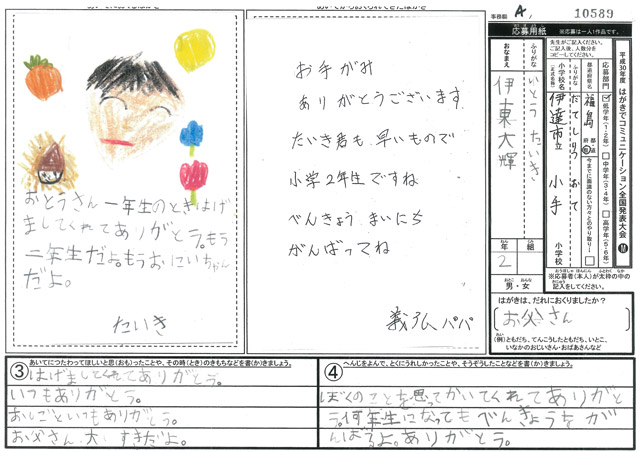 おとうさん一年生のときはげ
ましてくれてありがとう。もう
二年生だよ。もうおにいちゃん
だよ。
たいき
お手がみ
ありがとうございます
たいき君も早いもので
小学2年生ですね
べんきょう まいにち
がんばってね
義弘パパ
A
10589
応募用紙
※応募は一人1作品です。
先生がご記入ください。
ご記入後、人数分を
コピーしてください。
平成30年度 はがきでコミュニケーション全国発表大会
応募部門
低学年(1・2年)
中学年(3・4年)
高学年(5・6年)
都道府県名
福島
小学校名
(正式名称)
だてしりつ おて
伊達市立 小手
小学校
ふりがな
いとう たいき
おなまえ
伊東大輝
年
2
組
男・女
※応募者(本人)が太枠の中の
記入をしてください。
はがきは、だれにおくりましたか?
お父さん
(例)ともだち、てんこうしたともだち、いとこ、
いなかのおじいさん・おばあさんなど
③
あいてにつたわってほしいと思(おも)ったことや、その時(とき)のきもちなどを書(か)きましょう。
はげましてくれてありがとう。
いつもありがとう。
おしごといつもありがとう。
お父さん、大すきだよ。
④
へんじをよんで、とくにうれしかったことや、そうぞうしたことなどを書(か)きましょう。
ぼくのことを思ってかいてくれてありがと
う。何年生になってもべんきょうをが
んばるよ。ありがとう。